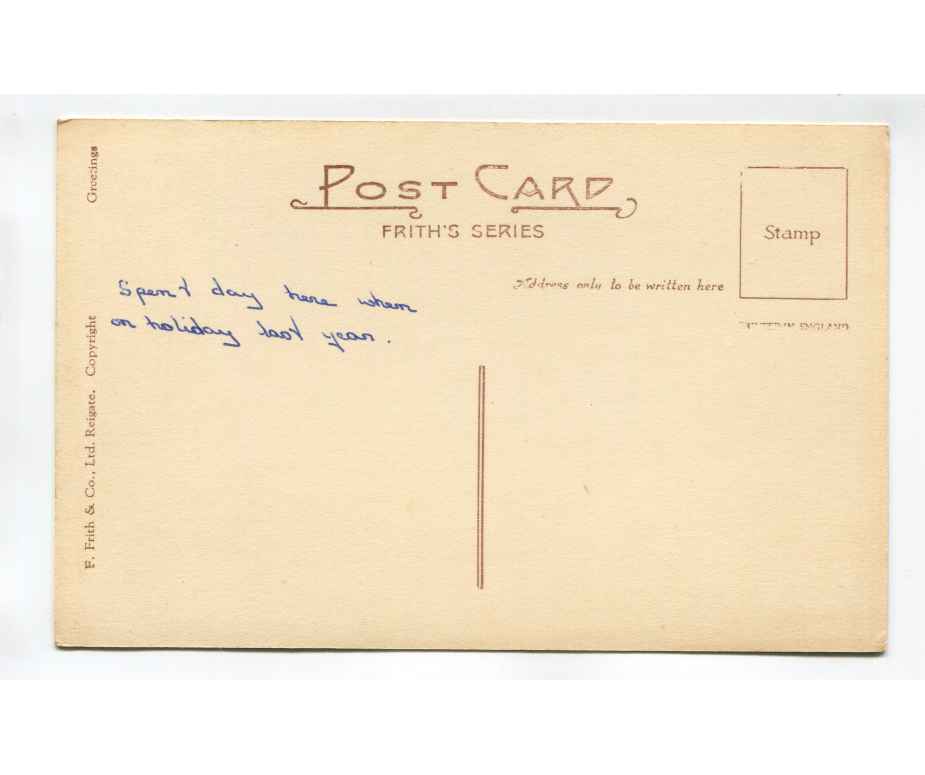 POST CARD
FRITH'S SERIES
Stamp
Address only to be written here
IN ENGLAND
Spent day here when
on holiday last year.
Greetings
F. Frith & Co., Ltd. Reigate. Copyright